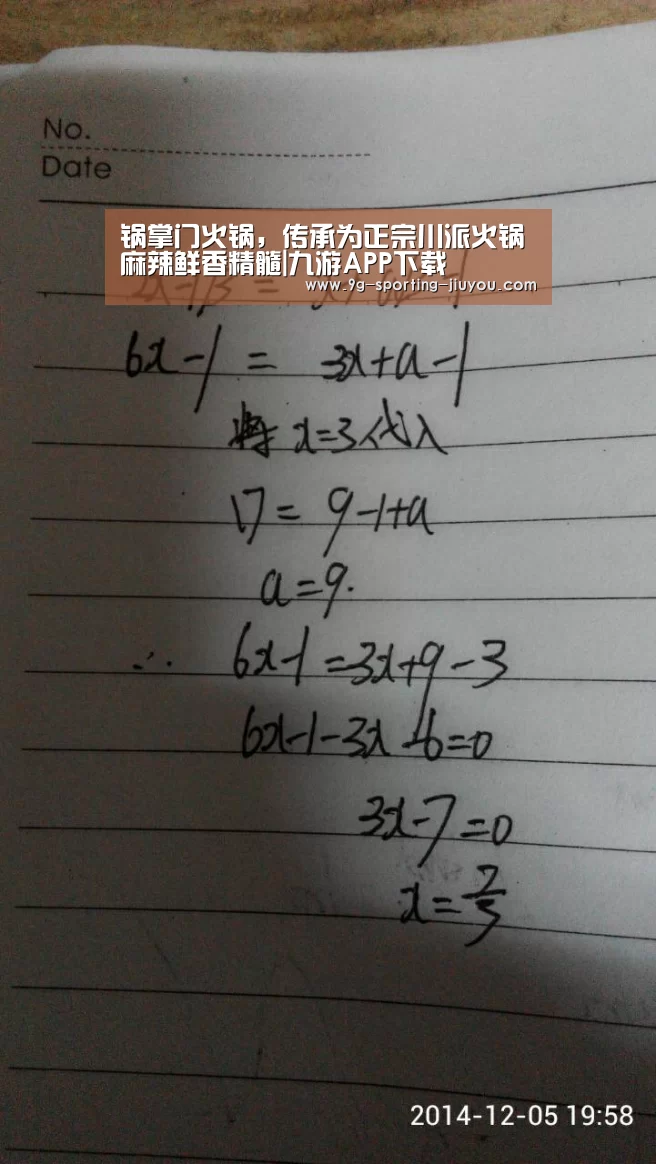 No.
Date
锅掌门火锅，传承为正宗川派火锅
麻辣鲜香精髓|九游APP下载
www.9g-sporting-jiuyou.com
6x-1 = 3x+a-1
将 x=3代入
17 = 9-1+a
a=9.
∴ 6x-1=3x+9-3
6x-1-3x-6=0
3x-7=0
x=7/3
2014-12-05 19:58